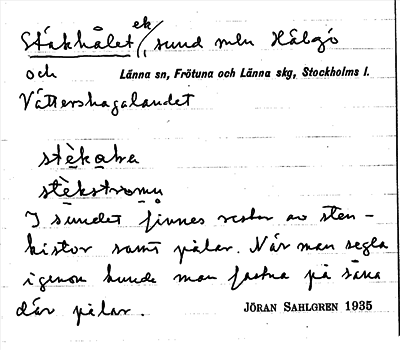 Stäkhålet ek/, sund mln Hålgö
och Länna sn, Frötuna och Länna skg, Stockholms l.
Vättershagalandet
stèkạḥa
stèkstromn
I sundet finnes rester av sten-
kistor samt pålar. När man segla
igenom kunde man fastna på såna
där pålar.
JÖRAN SAHLGREN 1935